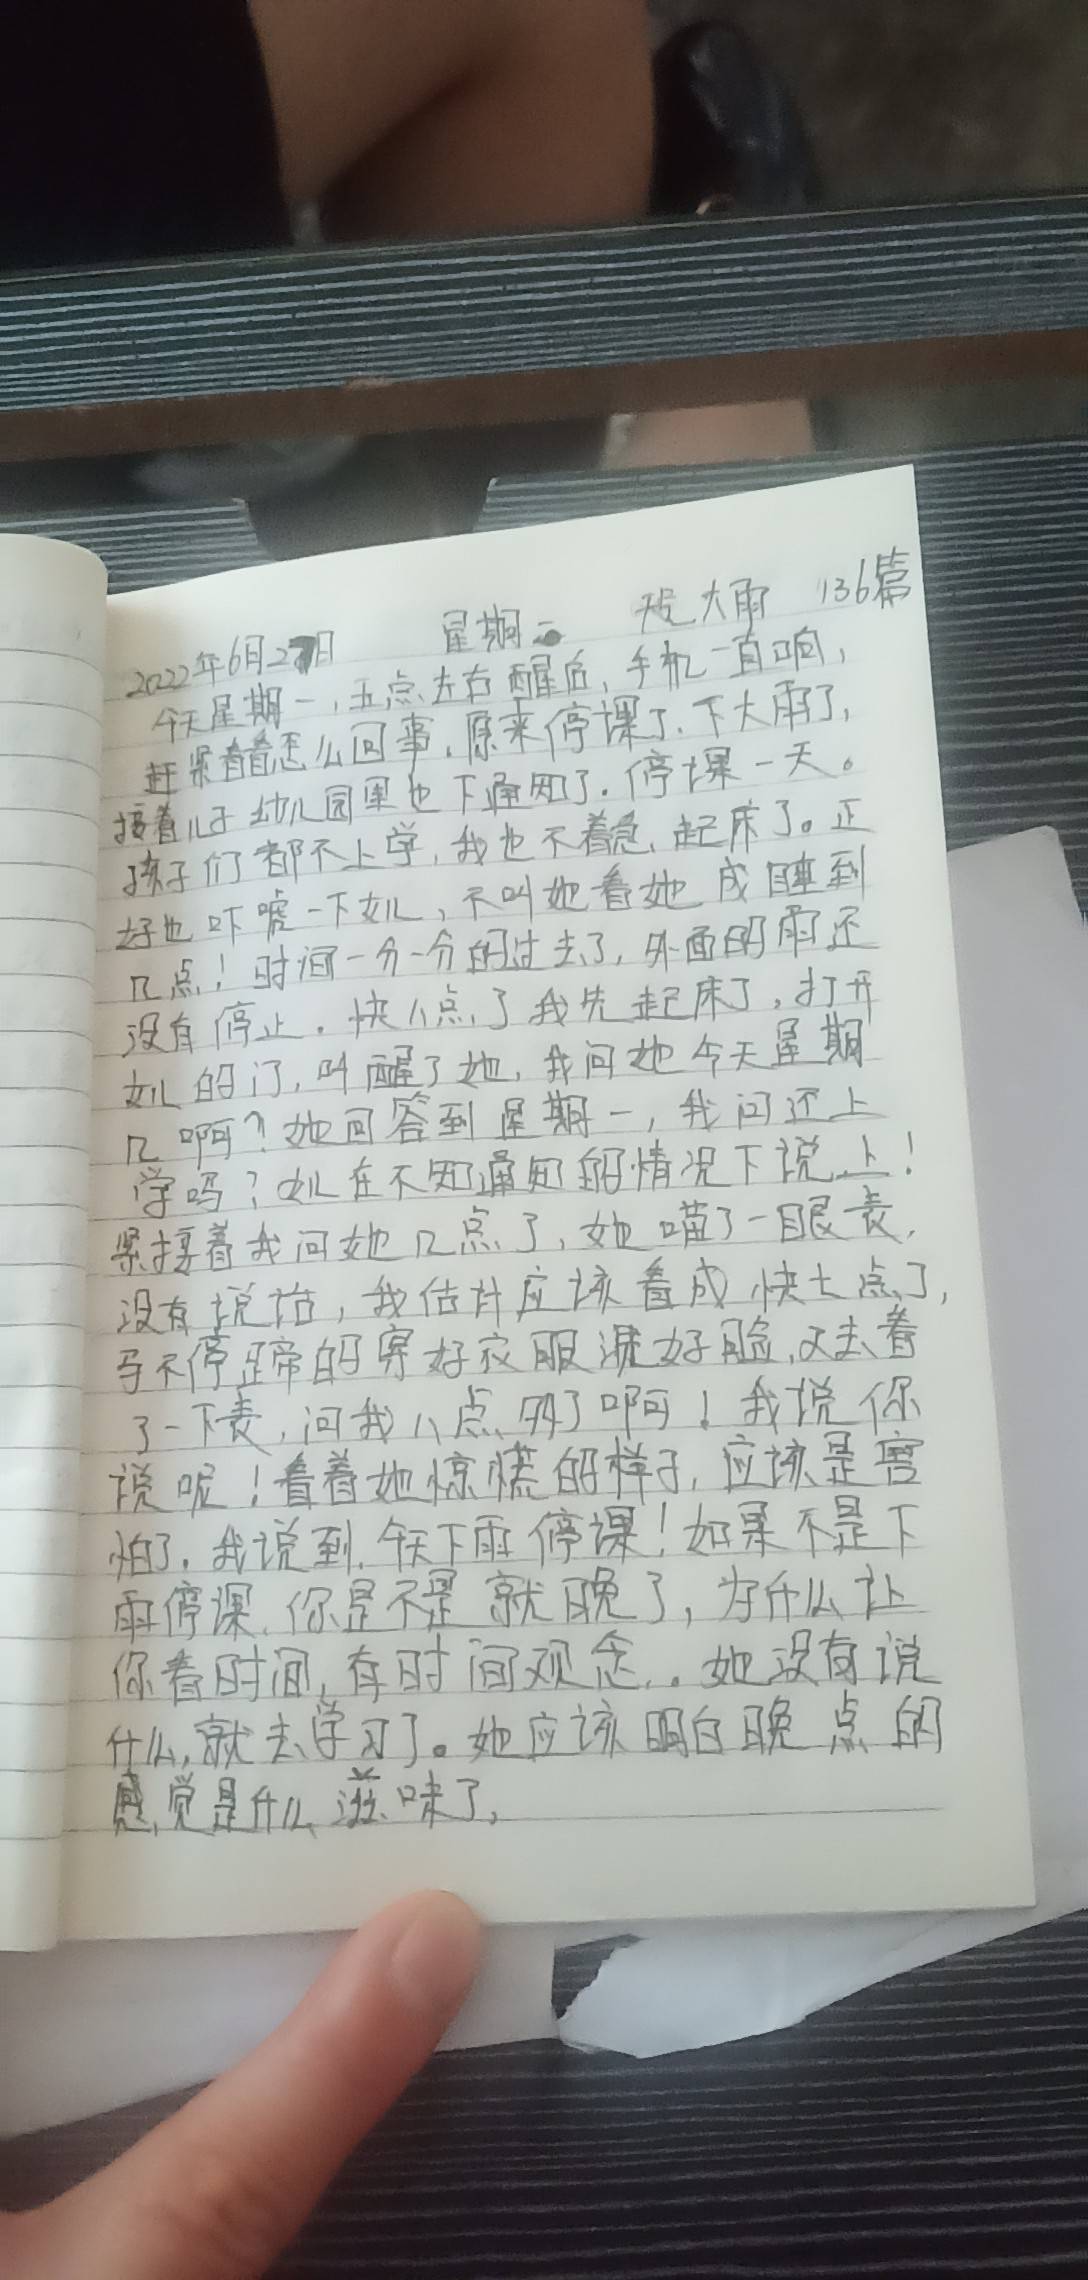 2022年6月27日 星期一 大雨 136篇
今天星期一,五点左右醒后,手机一直响,
赶紧看看怎么回事,原来停课了.下大雨了,
接着儿子幼儿园里也下通知了.停课一天。
孩子们都不上学,我也不着急,起床了。正
好也吓唬一下女儿,不叫她看她成睡到
几点!时间一分一分的过去了,外面的雨还
没有停止.快八点了我先起床了,打开
女儿的门,叫醒了她,我问她今天星期
几啊?她回答到星期一,我问还上
学吗?女儿在不知通知的情况下说上!
紧接着我问她几点了,她喵了一眼表,
没有说话,我估计应该看成快七点了,
马不停蹄的穿好衣服洗好脸,又去看
了一下表,问我八点够了啊!我说你
说呢!看着她惊慌的样子,应该是害
怕了.我说到.今天下雨停课!如果不是下
雨停课.你是不是就晚了,为什么让
你看时间,有时间观念..她没有说
什么,就去学习了。她应该明白晚点的
感觉是什么滋味了.